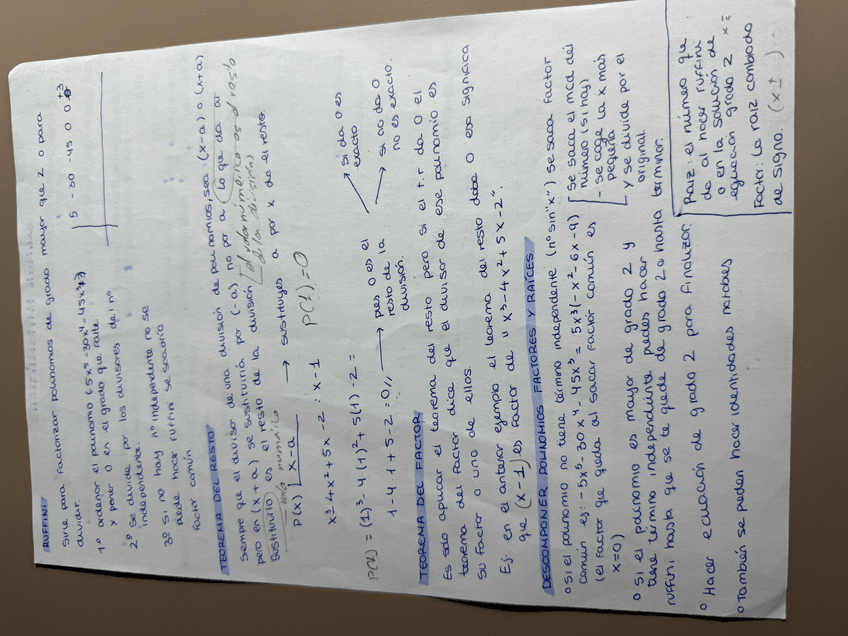 RUFFINI
Sirve para factorizar polinomios de grado mayor que 2 o para
dividir.
1º ordenar el polinomio (5x⁵-30x⁴-45x³+3)
y poner 0 en el grado que falte
5 -30 -45 0 0 +3
2º Se divide por los divisores del nº
independiente.
3º Si no hay nº independiente no se
puede hacer ruffini se sacaría
factor común.
TEOREMA DEL RESTO
Siempre que el divisor de una división de polinomios sea (x-a) o (x+a)
pero en (x+a) se sustituiría por (-a) no por a. Lo que da al
sustituirlo es el resto de la división [el valor numérico es el resto
de la división]
valor numérico
P(x) | x-a → sustituyes a por x da el resto.
x³-4x²+5x-2 : x-1 P(1)=0
P(1) = (1)³-4·(1)²+5(1)-2 =
1-4·1+5-2=0,, → pues 0 es el
resto de la
división.
si da 0 es
exacto
si no da 0
no es exacto.
TEOREMA DEL FACTOR
Es solo aplicar el teorema del resto pero si el t.r da 0 el
teorema del factor dice que el divisor de ese polinomio es
su factor o uno de ellos.
Ej: en el anterior ejemplo el teorema del resto daba 0 eso significa
que (x-1) es factor de "x³-4x²+5x-2"
DESCOMPONER POLINOMIOS FACTORES Y RAÍCES
o si el polinomio no tiene término independiente (nº sin "x") se saca factor
común ej: -5x⁵-30x⁴-45x³ = 5x³(-x²-6x-9)
(el factor que queda al sacar factor común es
x=0)
se saca el mcd del
número (si hay)
- se coge la x más
pequeña
- y se divide por el
original.
o si el polinomio es mayor de grado 2 y
tiene término independiente puedes hacer
ruffini hasta que se te quede de grado 2 o hasta terminar.
o Hacer ecuación de grado 2 para finalizar.
o También se pueden hacer identidades notables
Raiz: el número que
da al hacer ruffini
o en la solución de
ecuación grado 2 x =
Factor: La raiz cambiada
de signo. (x ± )